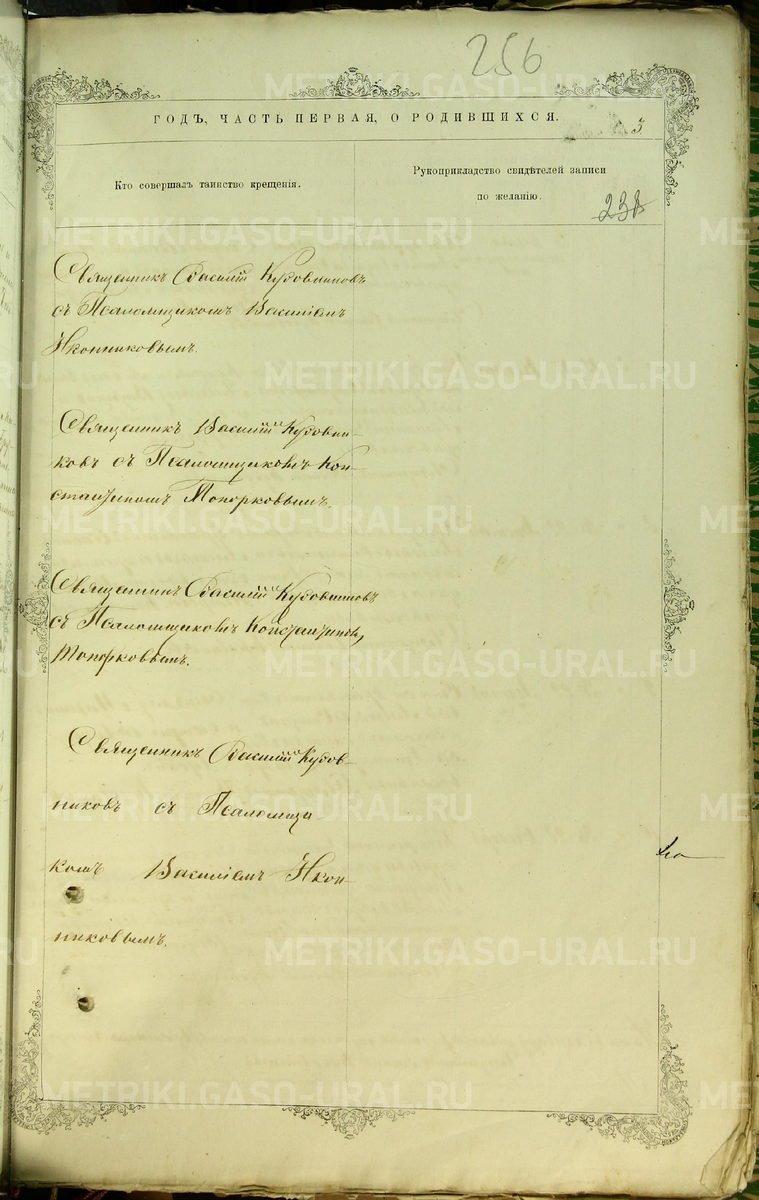 256
ГОДЪ, ЧАСТЬ ПЕРВАЯ, О РОДИВШИХСЯ.
3
Кто совершалъ таинство крещенія.
Рукоприкладство свидѣтелей записи
по желанію.
238
Священникъ Василій Кудовниковъ
съ Псаломщикомъ Василіемъ
Иконниковымъ.
Священникъ Василій Кудовни-
ковъ съ Псаломщикомъ Кон-
стантиномъ Топорковымъ.
Священникъ Василій Кудовниковъ
съ Псаломщикомъ Константиномъ
Топорковымъ.
Священникъ Василій Кудов-
никовъ съ Псаломщи
комъ Василіемъ Икон-
никовымъ.
METRIKI.GASO-URAL.RU